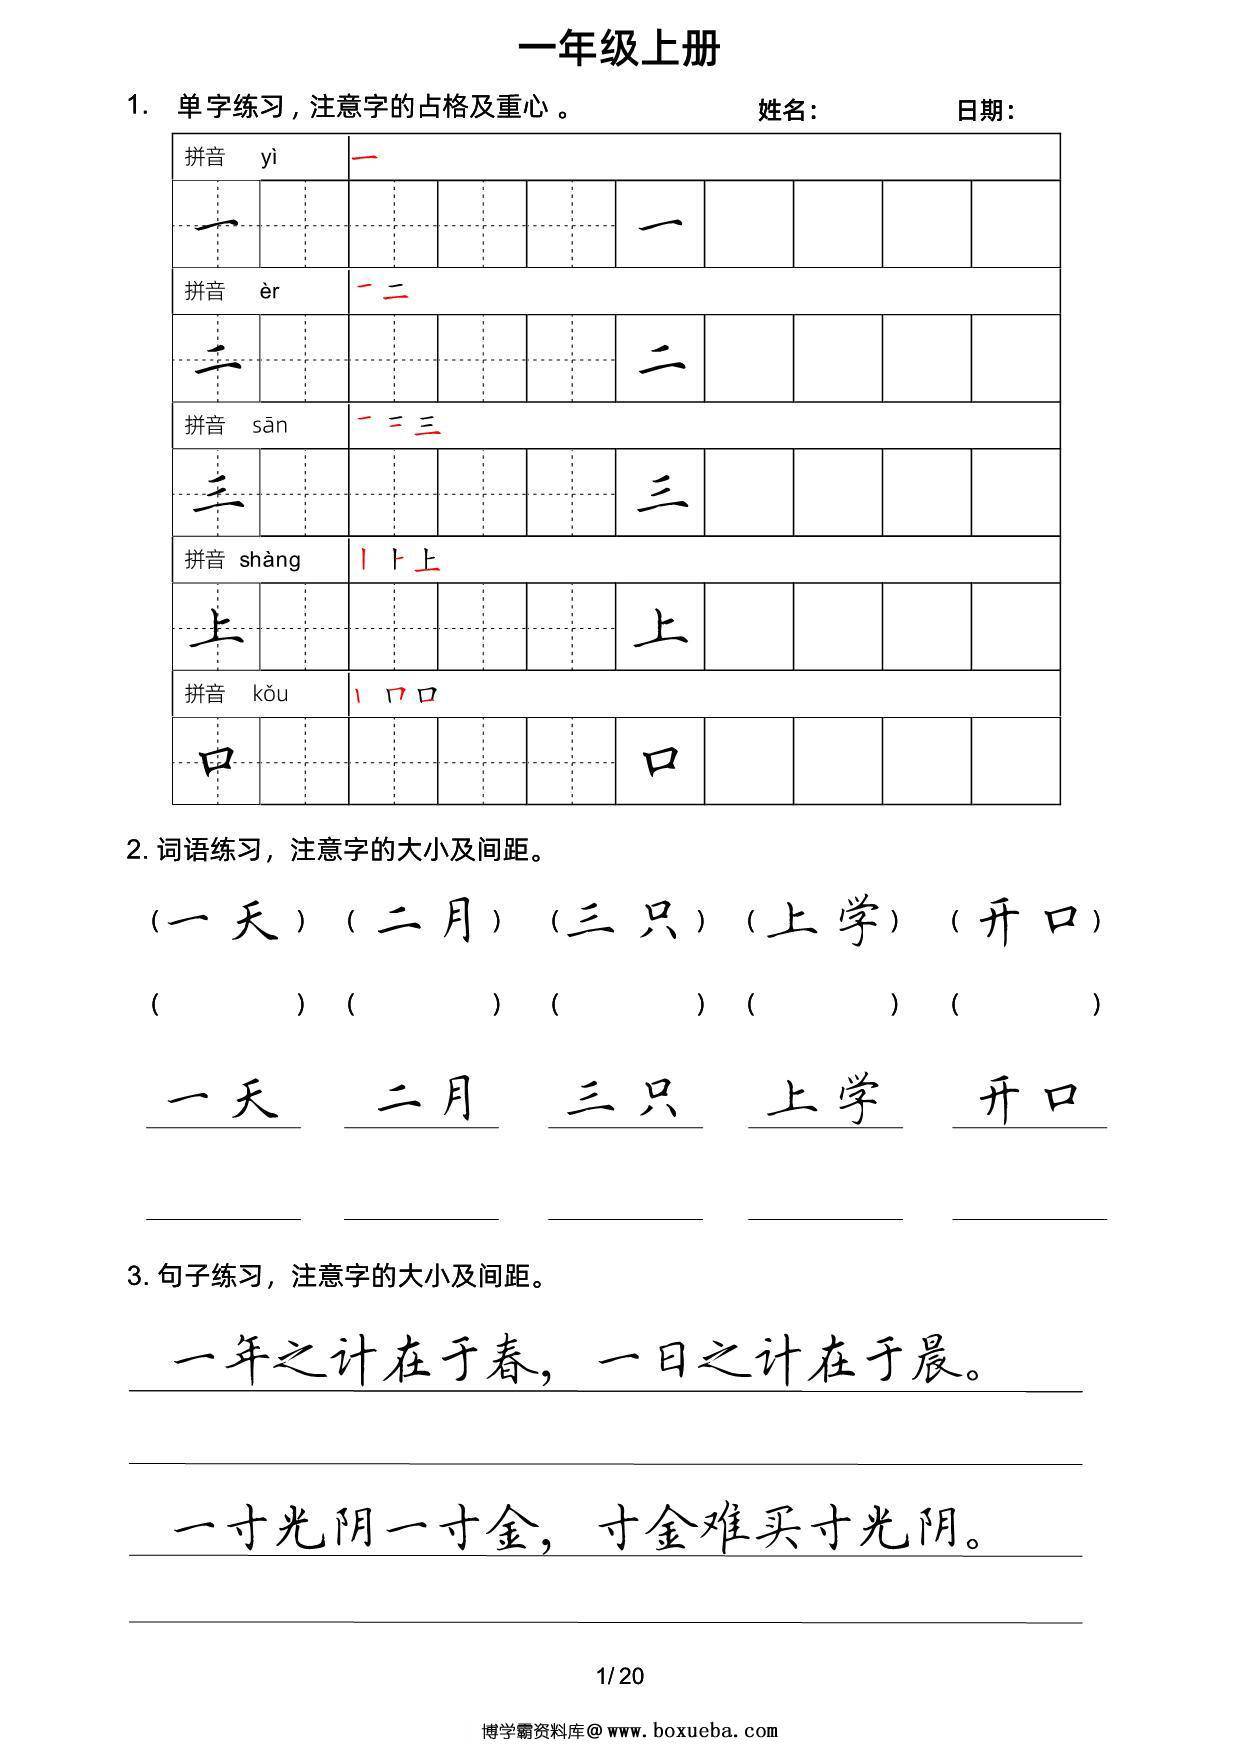 一年级上册
1. 单字练习，注意字的占格及重心。 姓名： 日期：
拼音 yì 一
一 一
拼音 èr 一 二
二 二
拼音 sān 一 二 三
三 三
拼音 shàng 丨 ⺊ 上
上 上
拼音 kǒu 丨 冂 口
口 口
2. 词语练习，注意字的大小及间距。
（一天）（二月）（三只）（上学）（开口）
（ ）（ ）（ ）（ ）（ ）
一天 二月 三只 上学 开口
3. 句子练习，注意字的大小及间距。
一年之计在于春，一日之计在于晨。
一寸光阴一寸金，寸金难买寸光阴。
1/20
博学霸资料库@www.boxueba.com